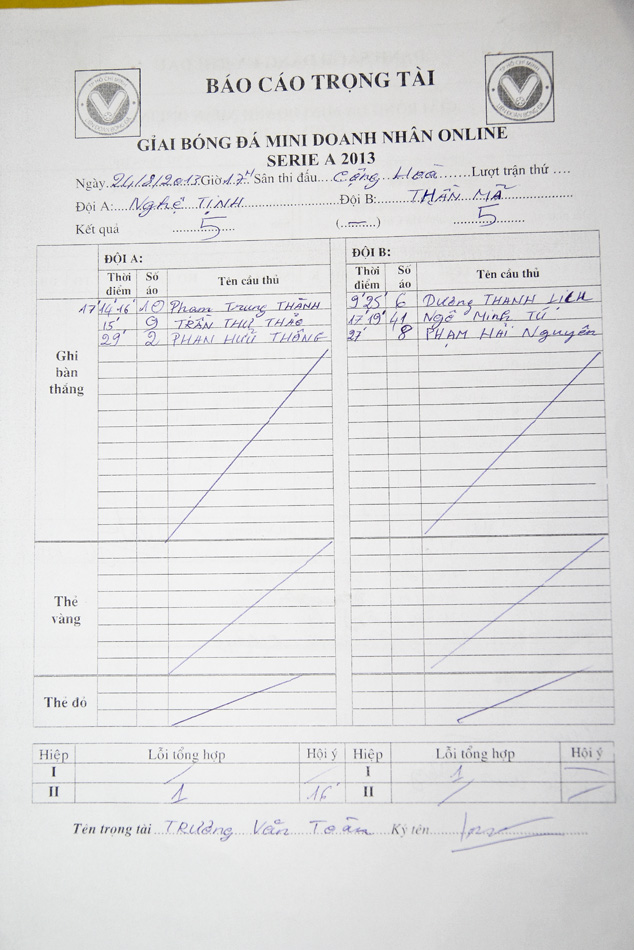 BÁO CÁO TRỌNG TÀI
GIẢI BÓNG ĐÁ MINI DOANH NHÂN ONLINE
SERIE A 2013
Ngày 24/8/2013 Giờ 17H Sân thi đấu....Cộng Hoà.......Lượt trận thứ ....
Đội A:....Nghệ Tịnh.......Đội B:....THẦN MÃ
Kết quả 5 (...—...) 5
ĐỘI A: ĐỘI B:
Thời điểm Số áo Tên cầu thủ Thời điểm Số áo Tên cầu thủ
Ghi bàn thắng
17' 14' 16' 10 Phạm Trung THÀNH 9' 25' 6 Dương THANH LỊCH
15' 9 TRẦN THỤ THẢO 17' 19' 41 Ngô Minh TÚ
29' 2 PHAN HỮU THỐNG 27' 8 PHẠM HẢI Nguyên
Thẻ vàng
Thẻ đỏ
Hiệp Lỗi tổng hợp Hội ý Hiệp Lỗi tổng hợp Hội ý
I I 1
II 1 16' II
Tên trọng tài TRƯƠNG VĂN TOÀN Ký tên